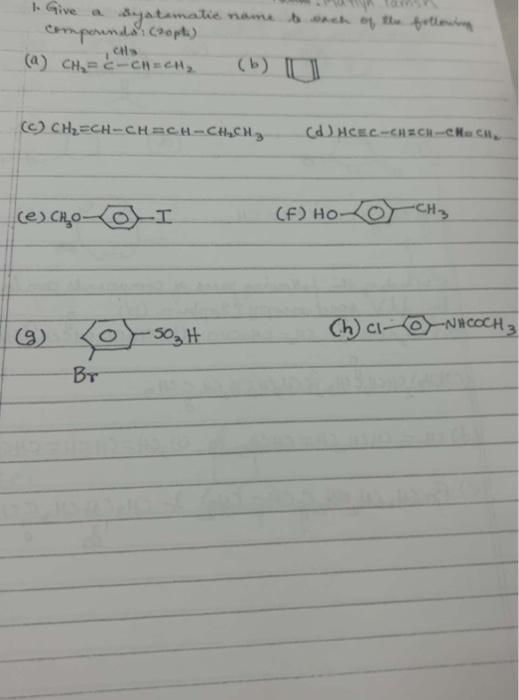 1. Give a systematic name to each of the following
compounds: (20pts)
CH3
(a) CH2=C-CH=CH2 (b)
(c) CH2=CH-CH=CH-CH2CH3 (d) HC≡C-CH=CH-CH=CH2
(e) CH3O- -I (f) HO- -CH3
(g) -SO3H (h) Cl- -NHCOCH3
Br